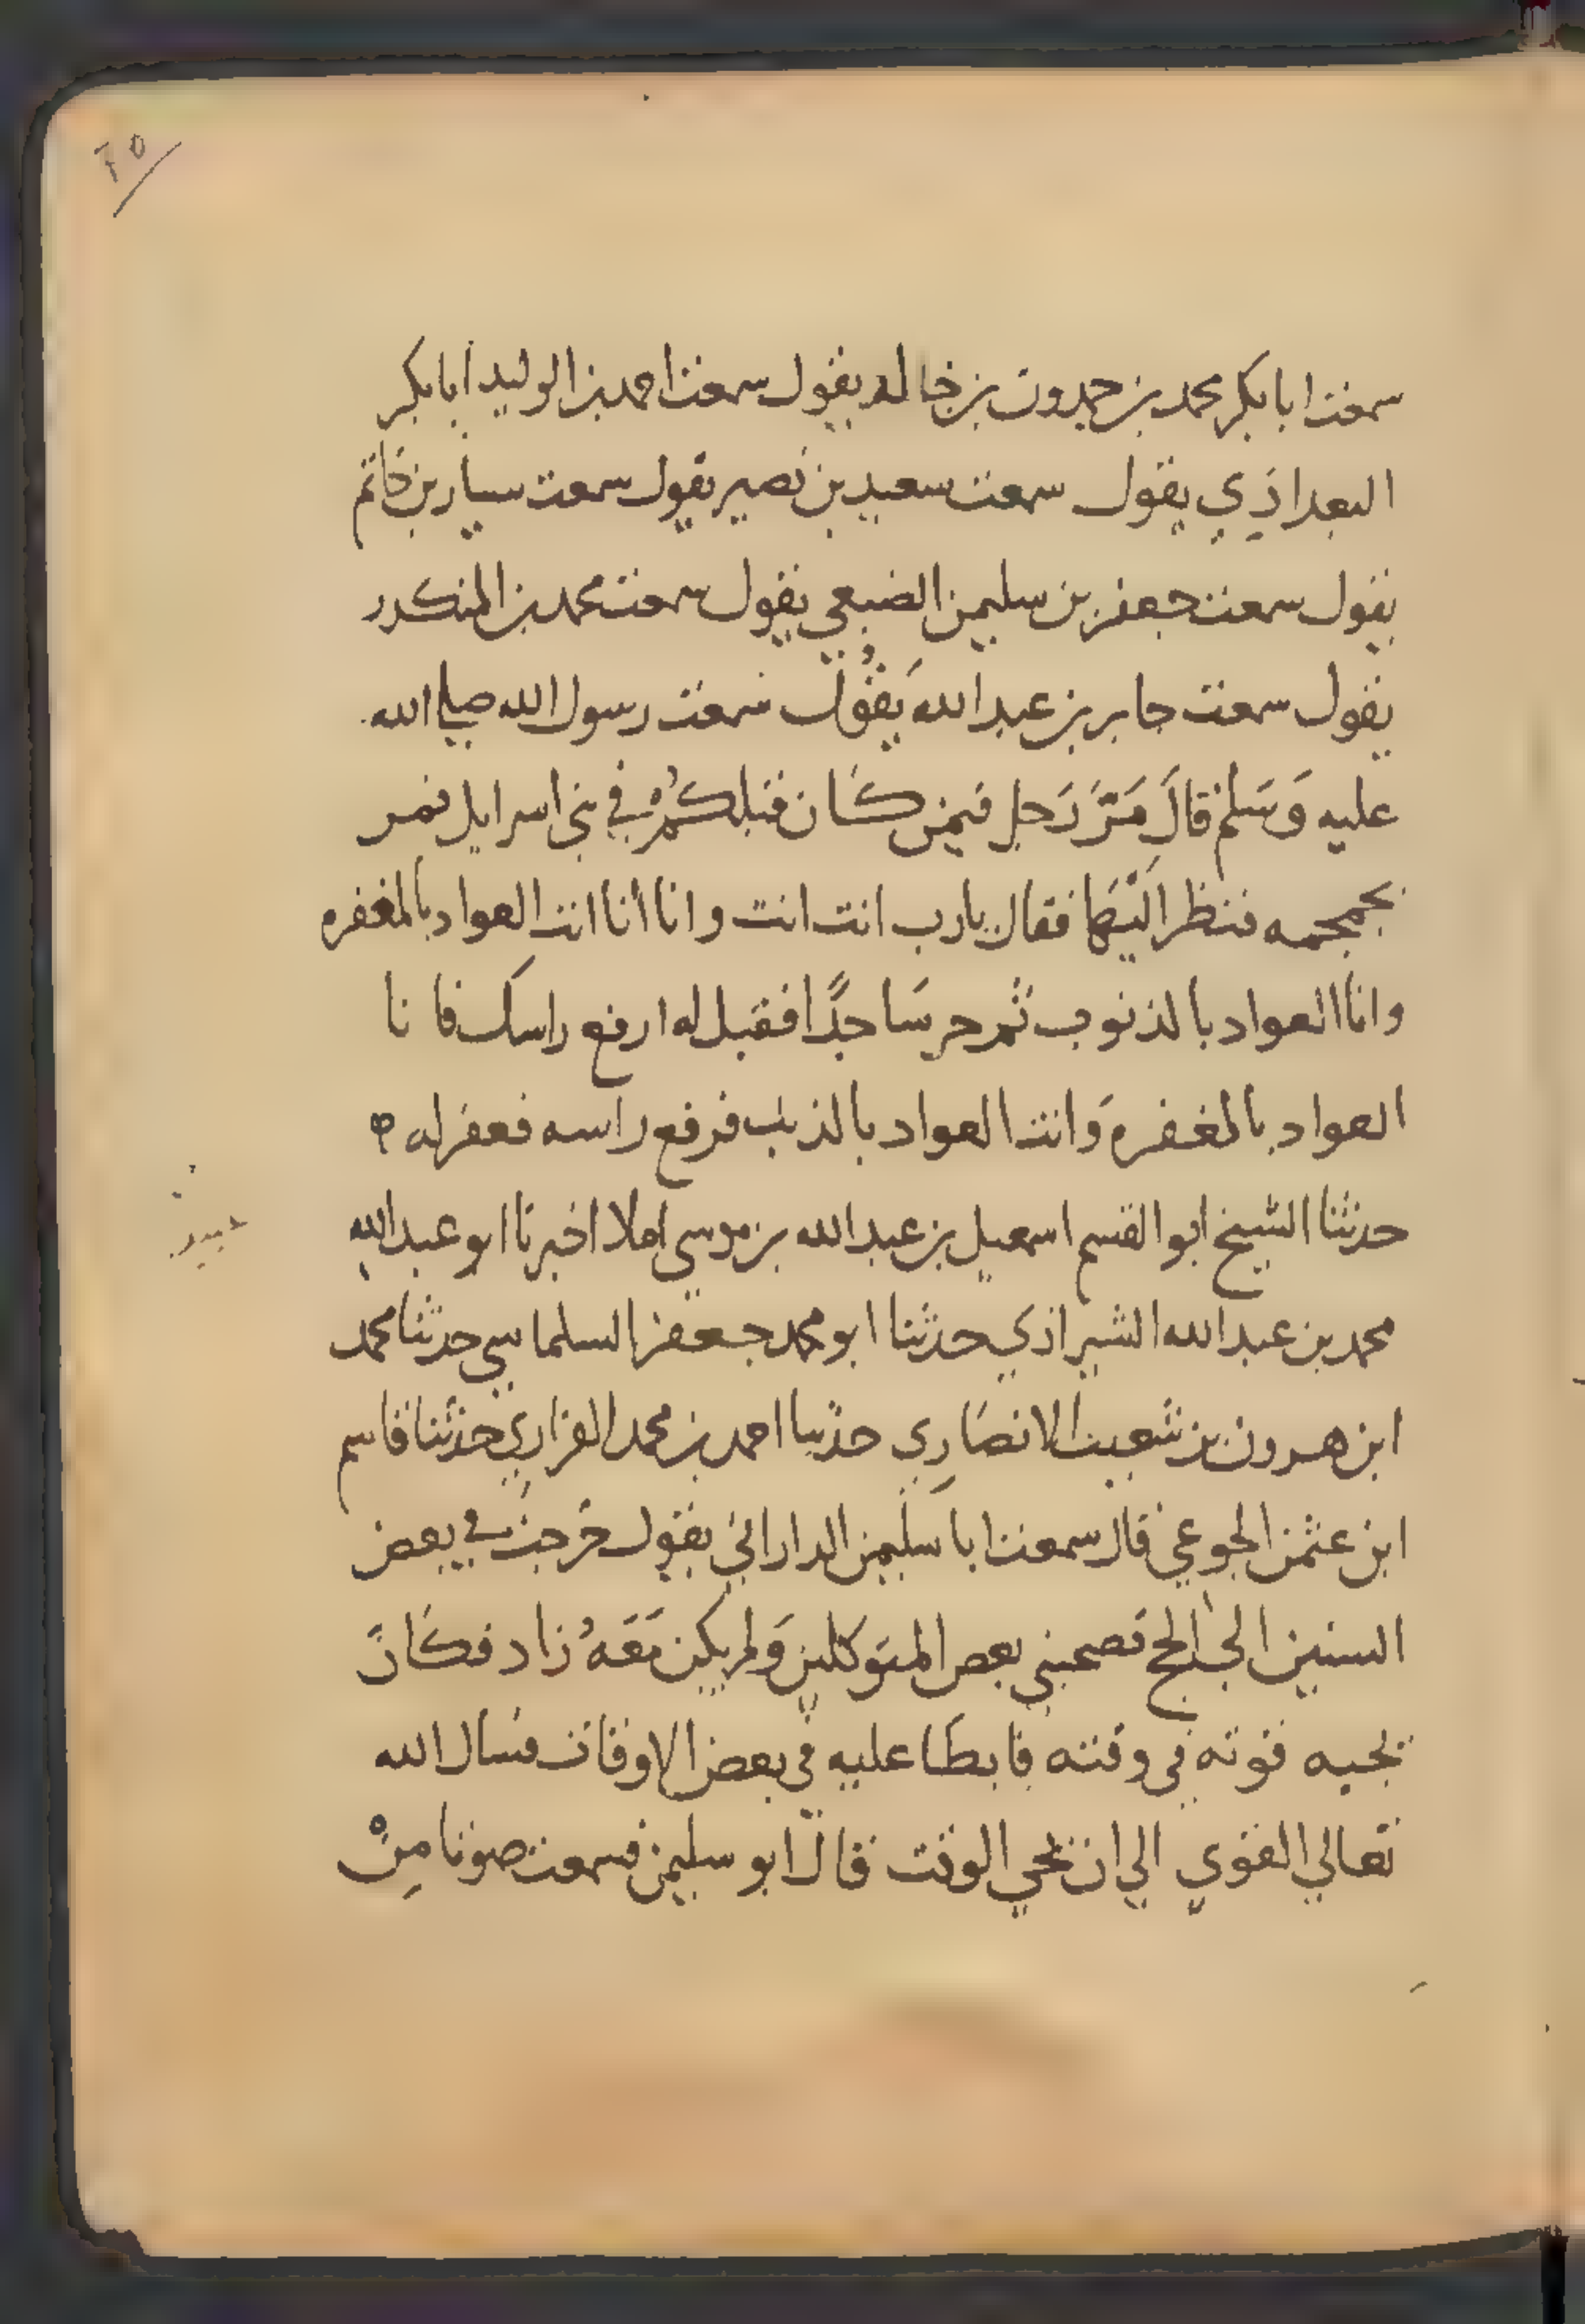 ٦٥
سمعت ابا بكر محمد بن حمدون بن خالد يقول سمعت احمد بن الوليد ابا بكر
البغداذي يقول سمعت سعيد بن نصير يقول سمعت سيار بن حاتم
يقول سمعت جعفر بن سليمن الضبعي يقول سمعت محمد بن المنكدر
يقول سمعت جابر بن عبد الله يَقُول سمعت رسول الله صلى الله
عليه وَسَلم قالَ مَرَّ رَجل فيمن كَان قبلكُمْ في بني اسرايل فمر
بجمجمه فنظر اليْهَا فقال يارب انت انت وانا أنا انت العواد بالمغفره
وانا العواد بالذنوب ثم خر سَاجدًا فقيل له ارفع راسك فانا
العواد بالمغفره وَانت العواد بالذنب فرفع راسه فغفر له
حدثنا الشيخ ابو القسم اسمعيل بن عبد الله بن موسي املا اخبرنا ابو عبد الله
محمد بن عبد الله الشيرازي حدثنا ابو محمد جعفر السلماسي حدثنا محمد
ابن هرون بن شعيب الانصَاري حدثنا احمد بن محمد الفزاري حدثنا قاسم
ابن عثمن الجوعي قال سمعت ابا سليمن الداراني يقول خرجت في بعض
السنين الي الحج فصحبني بعض المتوكلين وَلم يكن مَعَهُ زاد فكَانَ
يجيه قوته في وقته فابطا عليه في بعض الاوقات فسال الله
تعالي القوي الي ان يجي الوقت قال ابو سليمن فسمعت صوتا مِنْ